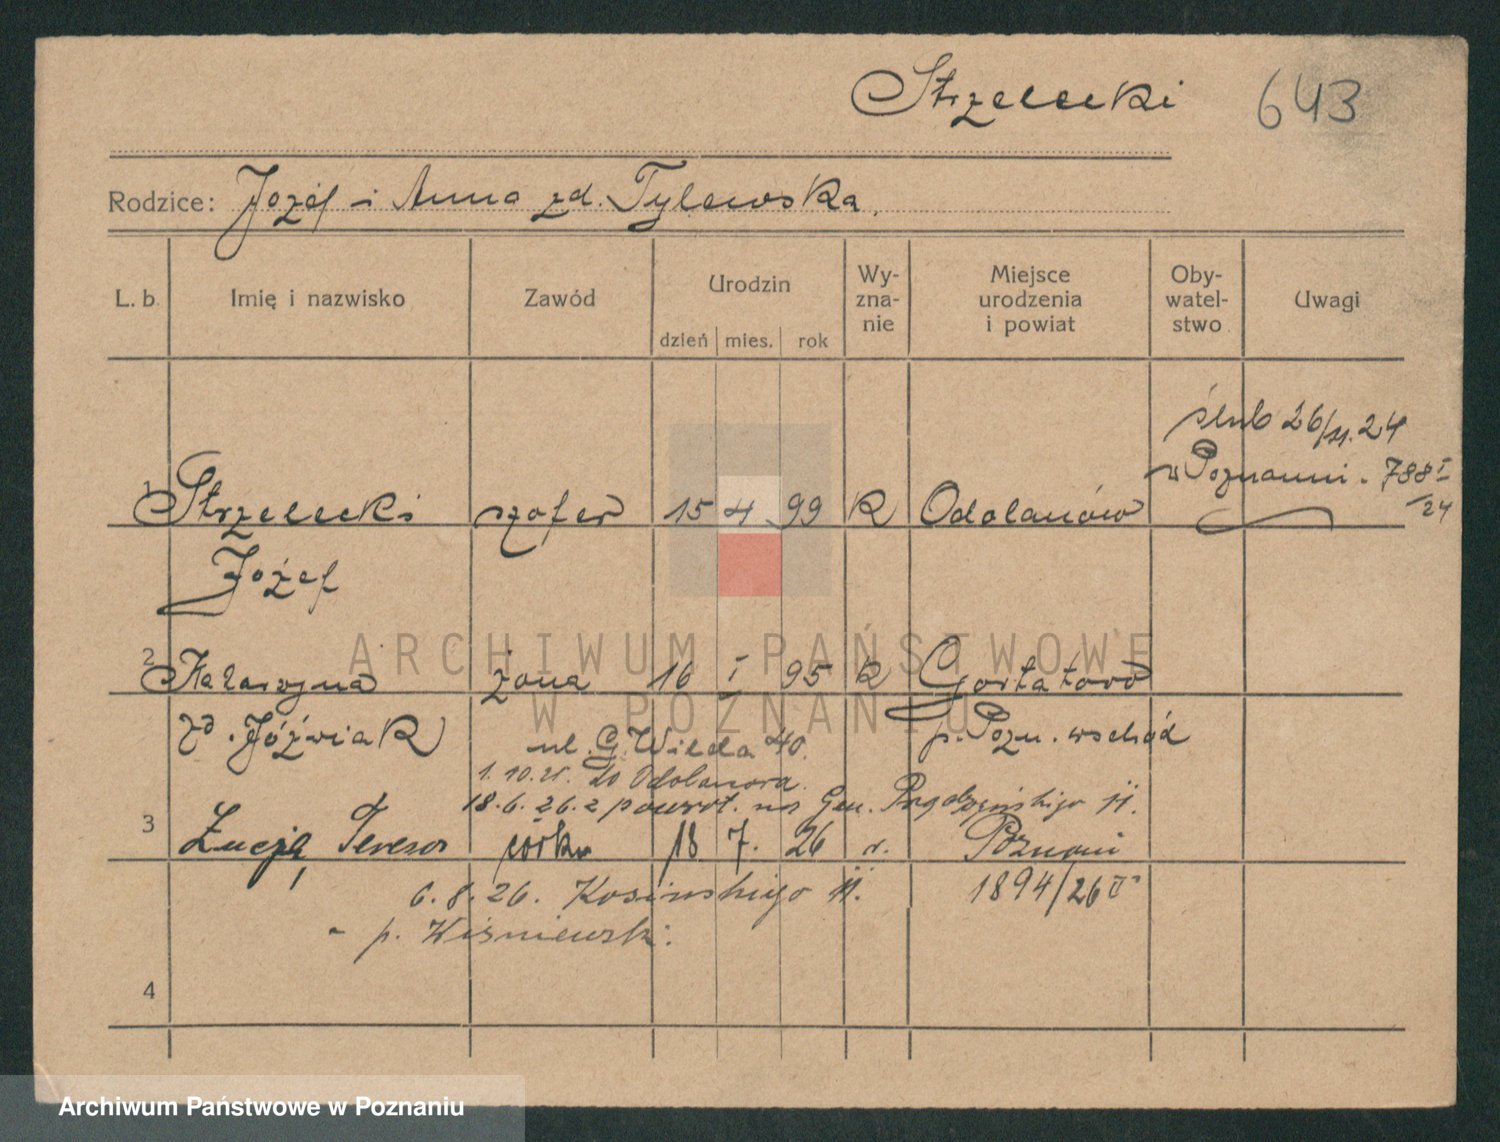 Strzelecki 643
Rodzice: Józef i Anna zd. Tylewska.
L. b. Imię i nazwisko Zawód Urodzin Wy- Miejsce Oby- Uwagi
zna- urodzenia watel-
nie i powiat stwo
dzień mies. rok
ślub 26/11.24
w Poznaniu. 788 I
/24
1 Strzelecki szofer 15 4 99 K Odolanów
Józef
2 Katarzyna żona 16 I 95 K Gortatowo
zd. Jóźwiak p. Pozn. wschód
ul. G. Wilda 40.
1.10.25. do Odolanowa.
18.6.26. z powrot. na Gen. Prądzyńskiego 11.
3 Łucja Teresa córka 18 7. 26 r. Poznań
6.8.26. Kosińskiego 11. 1894/26 V
- p. Wiśniewski.
4
ARCHIWUM PAŃSTWOWE
W POZNANIU
Archiwum Państwowe w Poznaniu